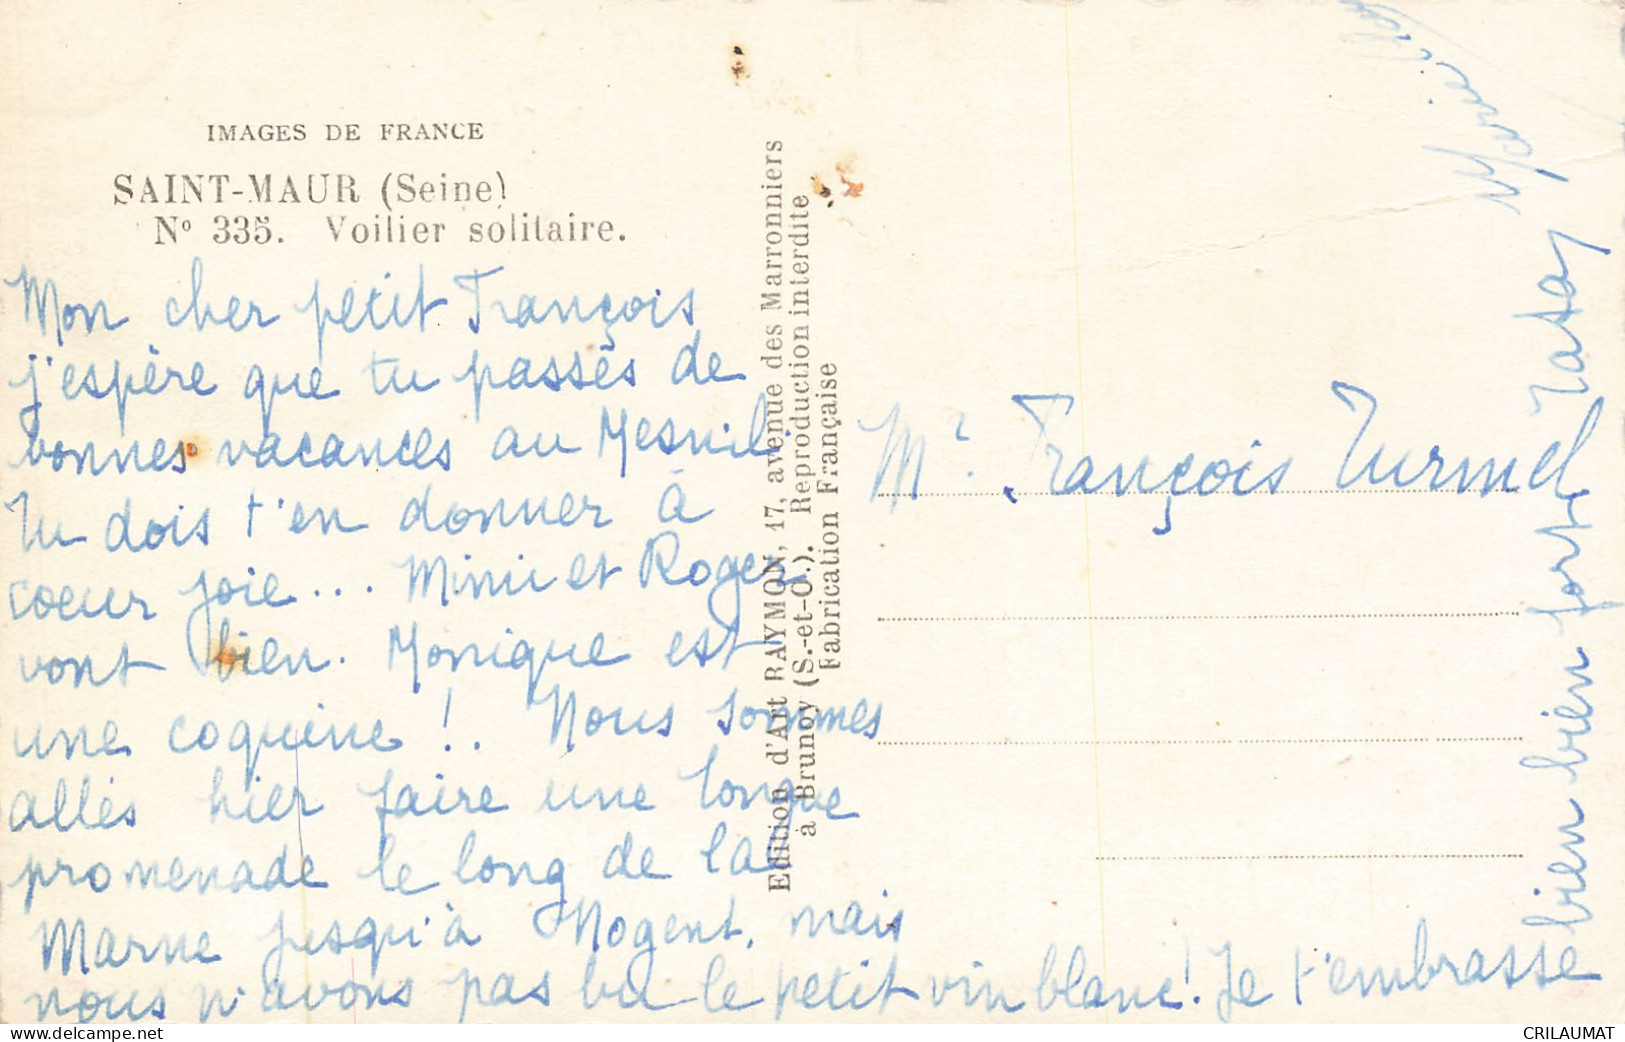 IMAGES DE FRANCE
SAINT-MAUR (Seine)
Nº 335. Voilier solitaire.
Mon cher petit François
j'espère que tu passes de
bonnes vacances au Mesnil.
Tu dois t'en donner à
coeur joie... Mimi et Roger
vont bien. Monique est
une coquine !. Nous sommes
allés hier faire une longue
promenade le long de la
Marne jusqu'à Nogent, mais
nous n'avons pas bu le petit vin blanc! Je t'embrasse
bien bien fort
Edition d'Art RAYMON, 17, avenue des Marronniers
à Brunoy (S.-et-O.). Reproduction interdite
Fabrication Française
Mr François Turmel
CRILAUMAT